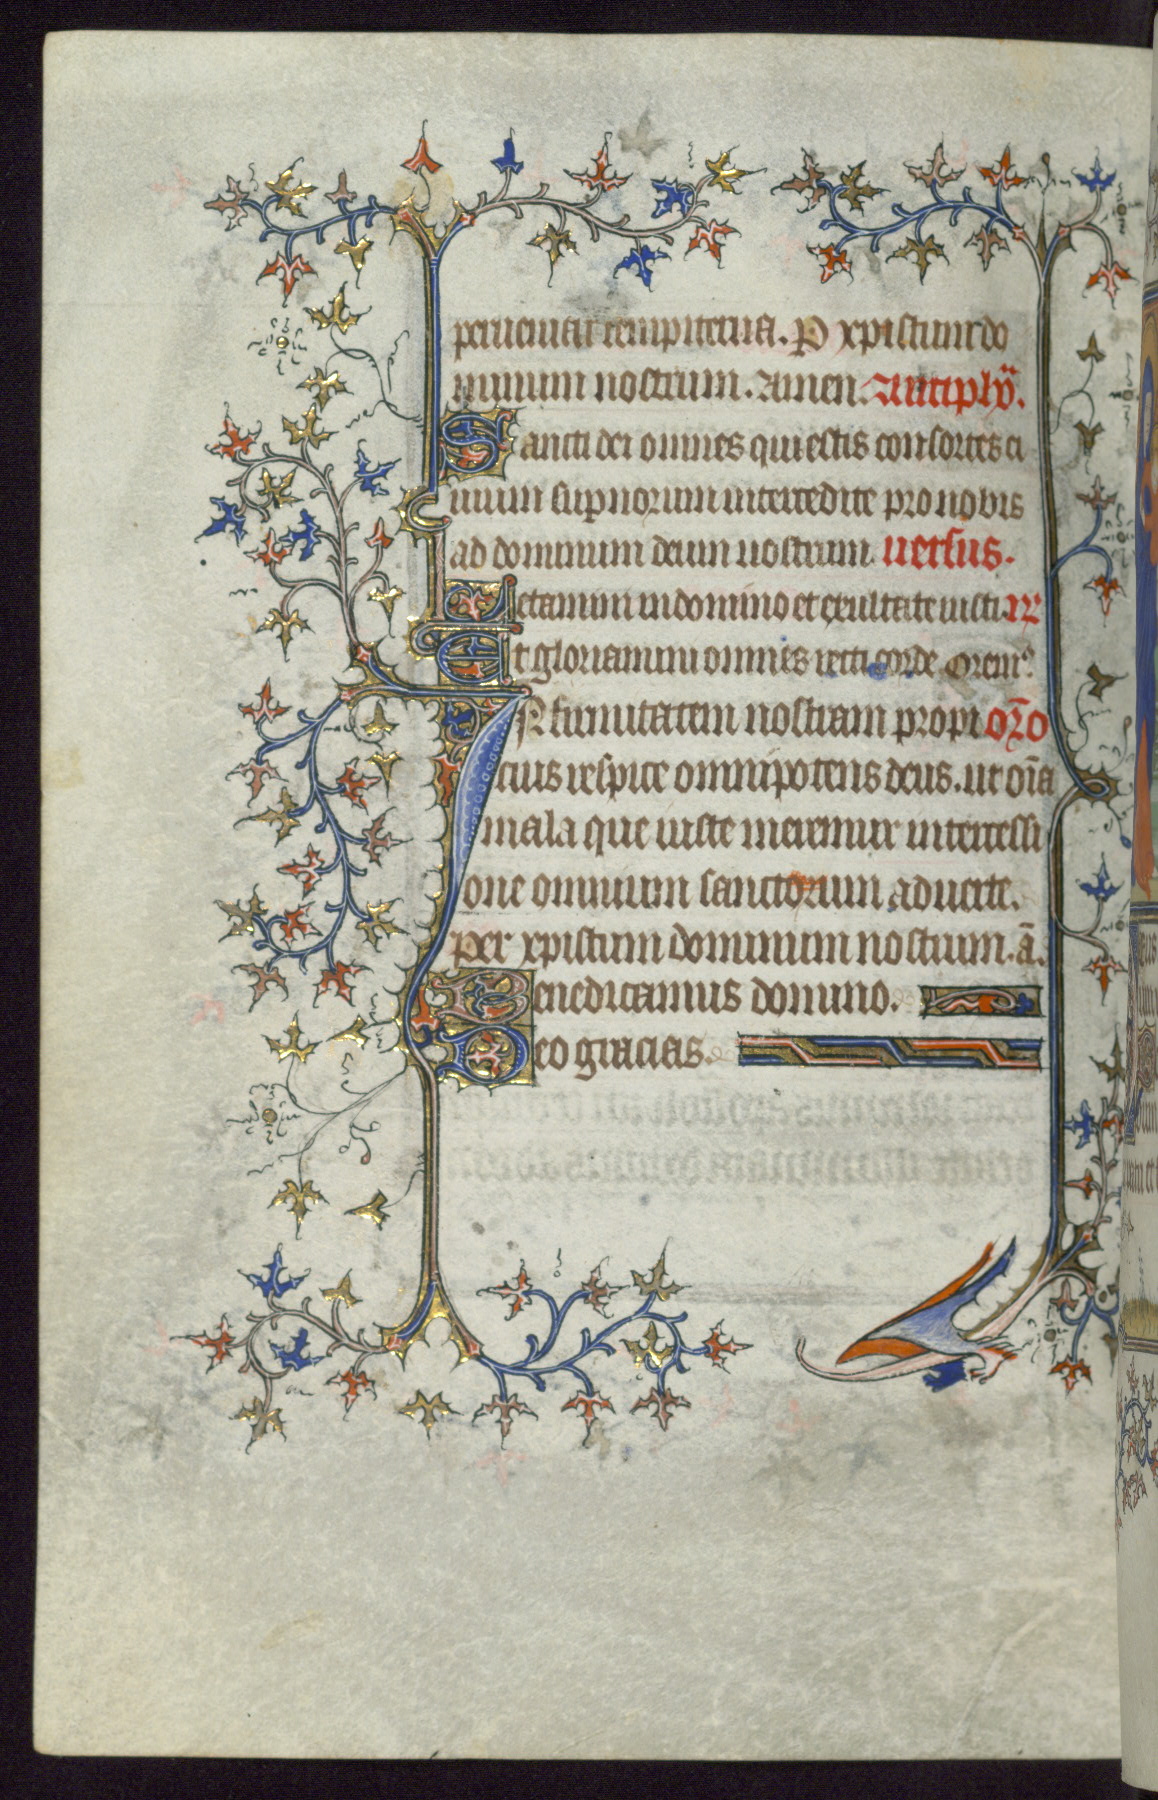 perueniat sempiterna. P xpistum do
minum nostrum. Amen. Antiph̃.
Sancti dei omnes qui estis consortes ci
uium supnorum intercedite pro nobis
ad dominum deum nostrum uersus.
Letamini in domino et exultate iusti
Et gloriamini omnes recti corde. Orem
Infirmitatem nostram propi or̃o
cius respice omnipotens deus. ut oĩa
mala que iuste meremur intercessi
one omnium sanctorum aducite.
Per xpistum dominum nostrum. ã.
Benedicamus domino.
Deo gracias.